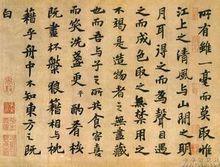 所有雖一毫而莫取惟
江上之清風與山間之明
月耳得之而為聲目遇之
而成色取之無禁用之
不竭是造物者之無盡藏
也而吾與子之所共食客喜
而笑洗盞更酌肴核
既盡杯盤狼藉相與枕
藉乎舟中不知東方之既
白